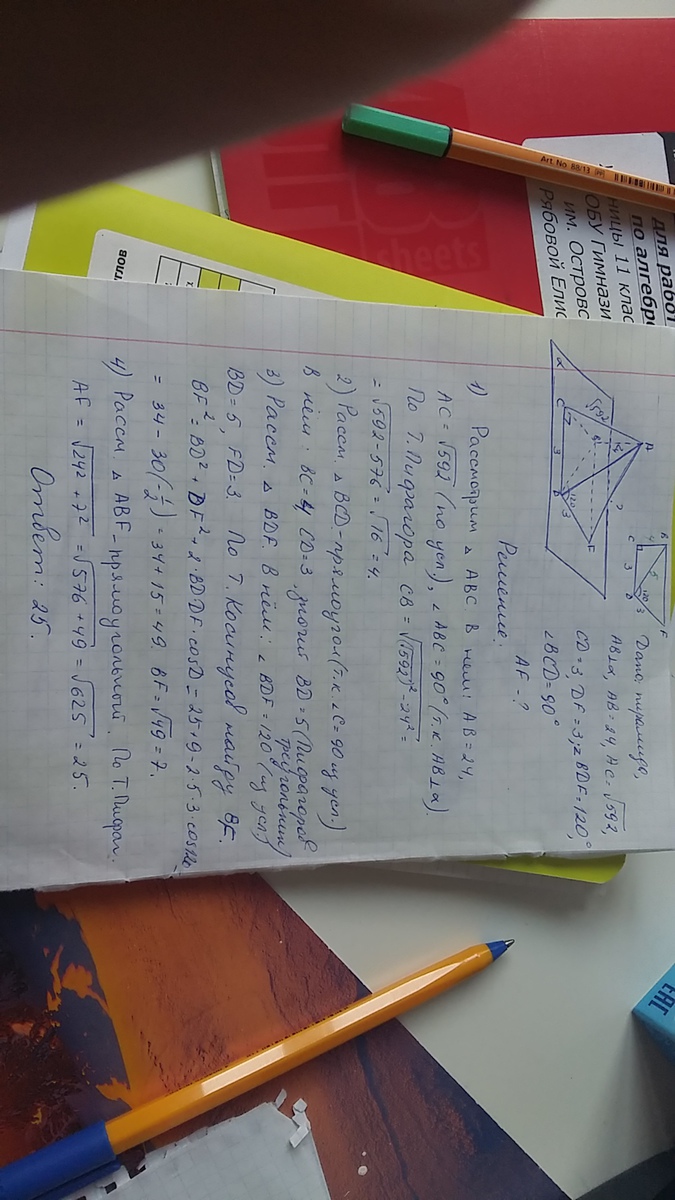 Дано: пирамида,
AB⊥α, AB = 24, AC = √592,
CD = 3, DF = 3, ∠BDF = 120°,
∠BCD = 90°
AF - ?
B
F
4
5
120
3
C
3
D
A
√592
24
?
B
5
C
120
3
3
D
F
α
Решение:
1) Рассмотрим △ ABC. В нём: AB = 24,
AC = √592 (по усл), ∠ABC = 90° (т.к. AB⊥α).
По Т. Пифагора CB = √(√592)² - 24² =
= √592-576 = √16 = 4.
2) Рассм. △ BCD - прямоугол (т.к. ∠C = 90 из усл.)
В нём: BC = 4, CD = 3, значит BD = 5 (Пифагоров
треугольник)
3) Рассм. △ BDF. В нём: ∠ BDF = 120° (из усл.)
BD = 5, FD = 3. По Т. Косинусов найду BF.
BF² = BD² + DF² + 2·BD·DF·cosD = 25+9-2·5·3·cos120
= 34 - 30(-1/2) = 34 + 15 = 49. BF = √49 = 7.
4) Рассм. △ ABF - прямоугольный. По Т. Пифаг.
AF = √24² + 7² = √576 + 49 = √625 = 25.
Ответ: 25.
Art. No. 88/13
sheets
для работ
по алгебр
ницы 11 клас
ОБУ Гимнази
им. Островс
Рябовой Елис
глов
EAC